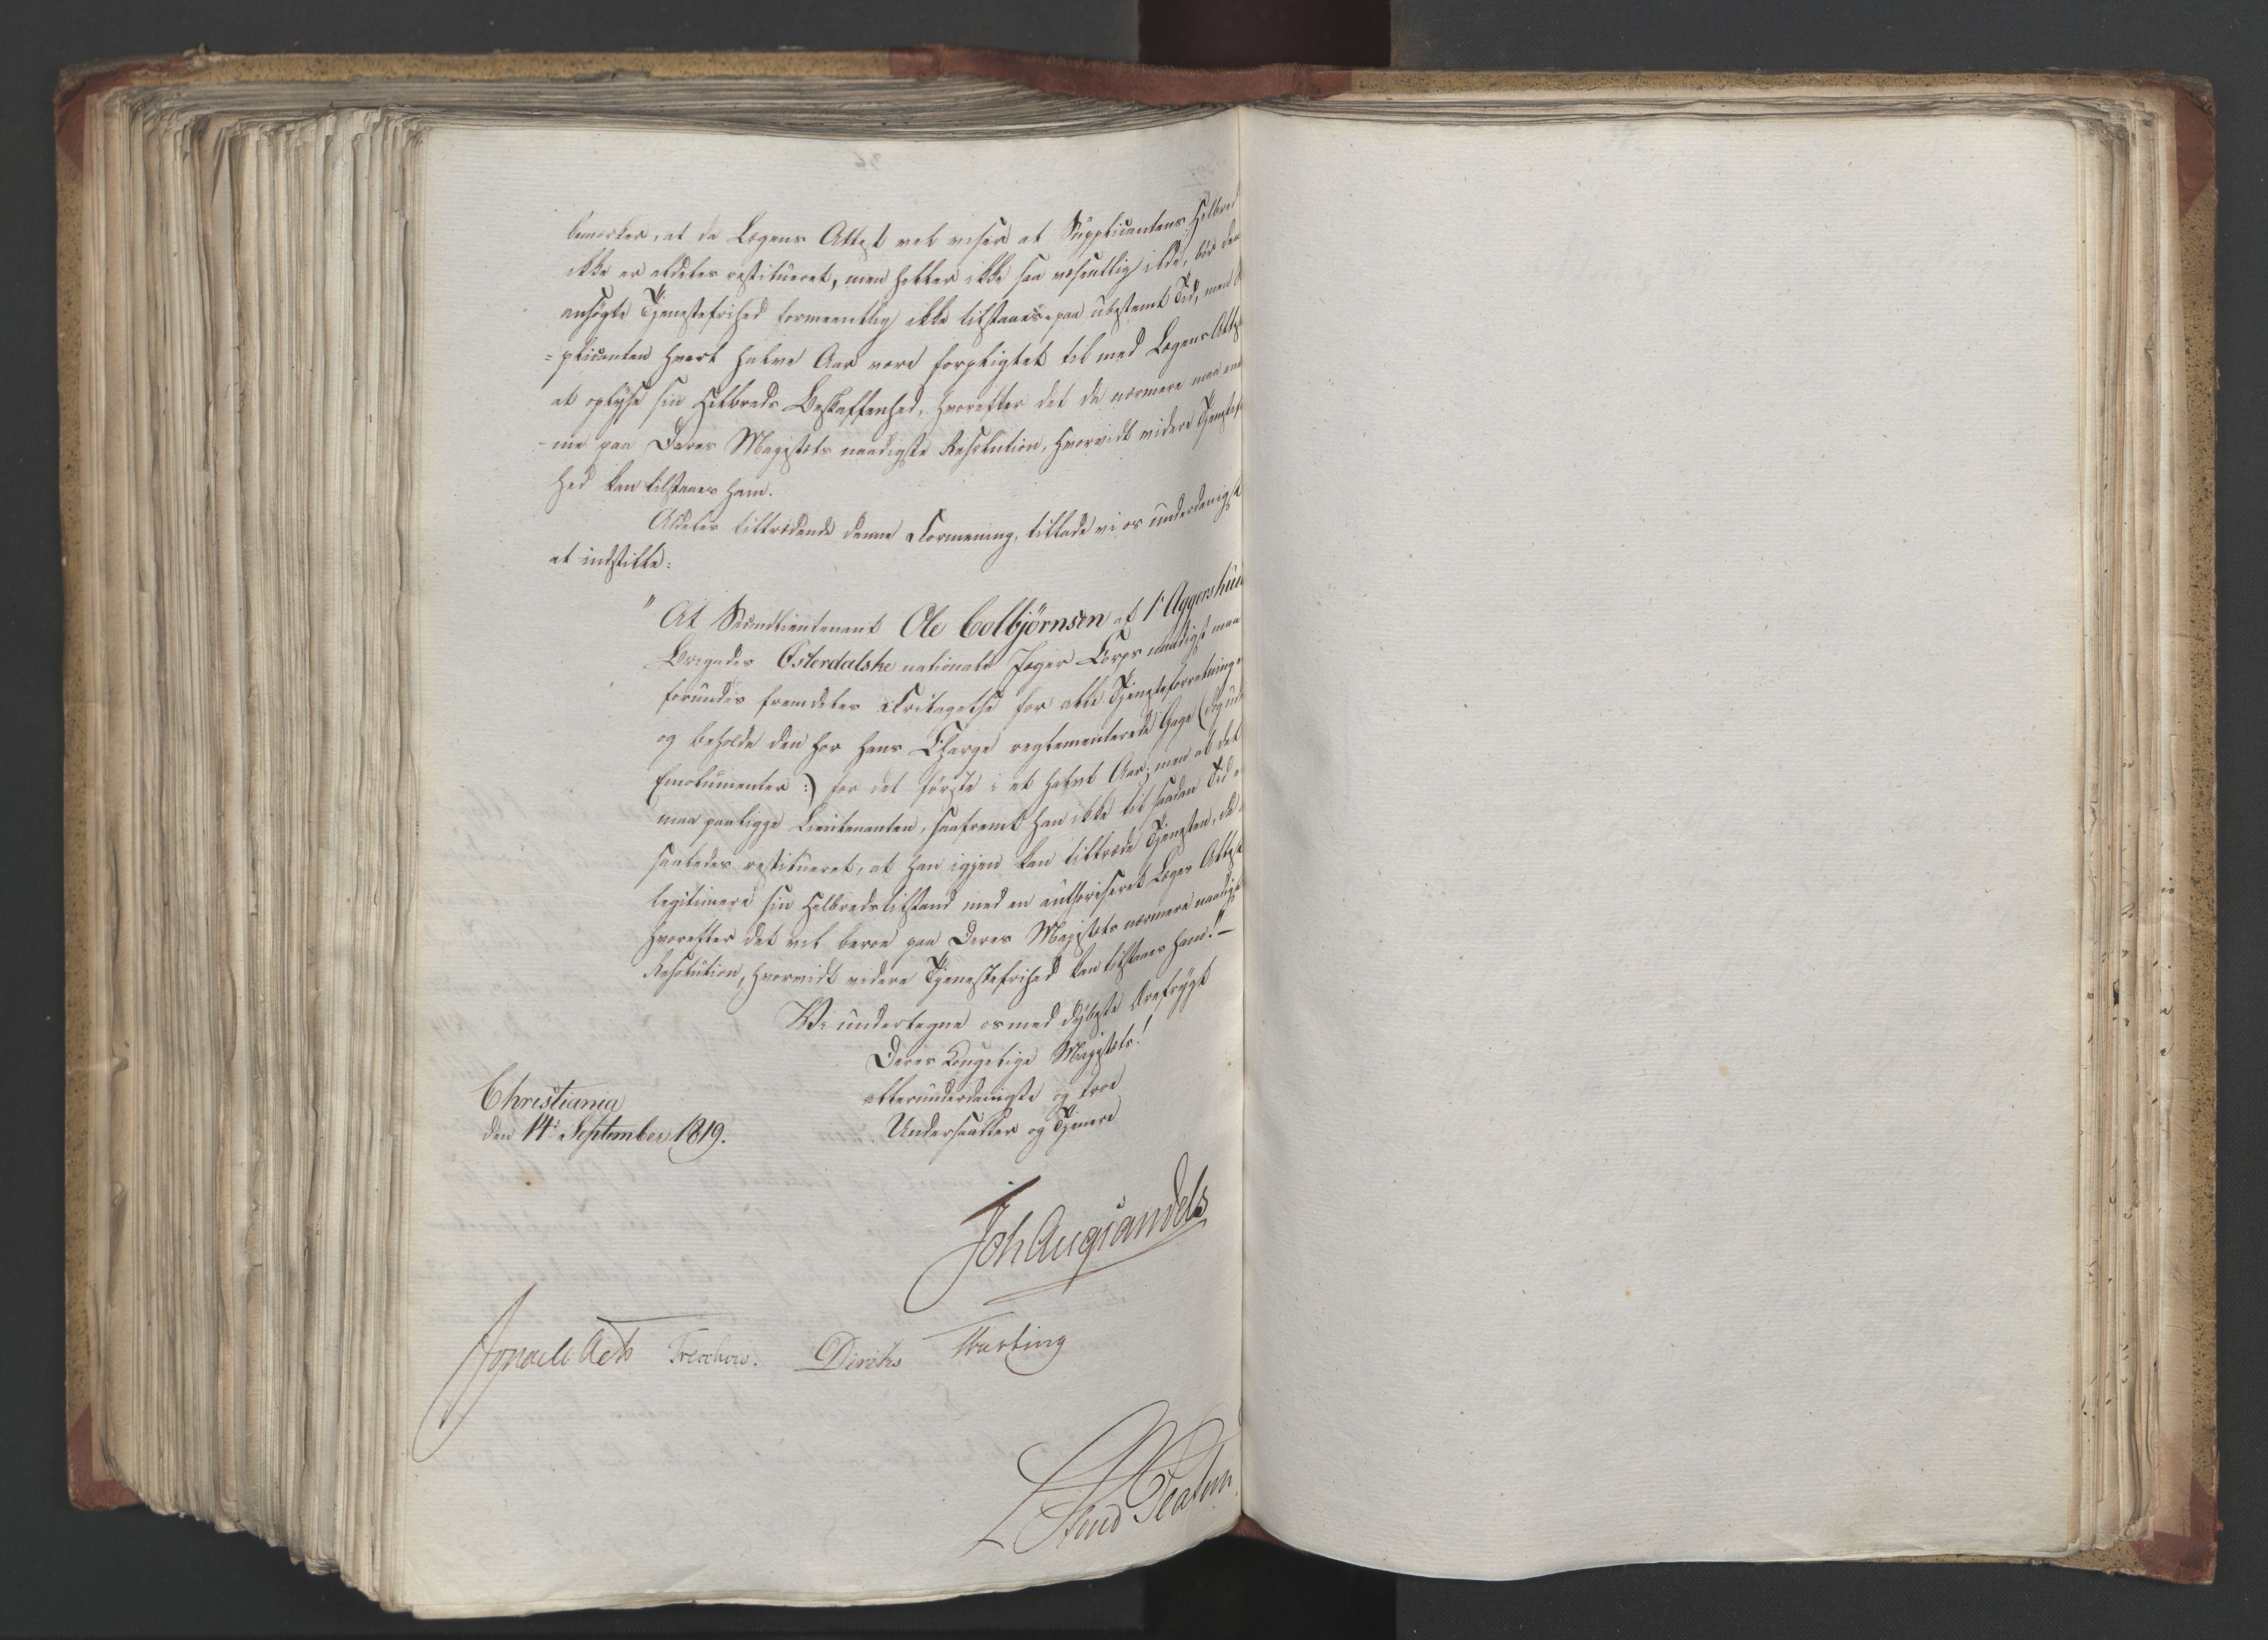 bemærker, at da Lægens Attest vel viser at Supplicantens Helbred
ikke er aldeles restitueret, men heller ikke saa væsentlig ilde, bør den
ansøgte Tjenestefrihed formeentlig ikke tilstaaes paa ubestemt Tid, men
=plicanten hvert halve Aar være forpligtet til med Lægens Attest
at oplyse sin Helbreds Beskaffenhed, hvorefter det da nærmere maa
me paa Deres Majestæts naadigste Resolution, hvorvidt videre Tjenestefri
hed kan tilstaaes ham.
Aldeles tiltrædende denne Formening, tillade vi os underdanigst
at indstille:
"At Secondlieutenant Ole Colbjørnsen af 1ᵉ Aggershuus
Brigades Østerdalske nationale Jæger Corps naadigst maa
forundes fremdeles Fritagelse for alle Tjenesteforretninger
og beholde den for hans Charge reglementerede Gage (dog uden
Emolumenter :) for det første i et halvt Aar; men at det
maa paaligge Lieutenanten, saafremt han ikke til saadan Tid er
saaledes restitueret, at han igjen kan tiltræde Tjenesten, da
legitimere sin Helbredstilstand med en authoriseret Læges Attest
hvorefter det vil beroe paa Deres Majestæts nærmere naadigste
Resolution, hvorvidt videre Tjenestefrihed kan tilstaaes ham." —
Vi undertegne os med dybeste Ærefrygt
Deres Kongelige Majestæts!
allerunderdanigste og troe
Undersaatter og Tjenere
Christiania
den 14ᵈ September 1819.
Joh Aug Sandels
Jonas Collett Treschow. Diriks Motzfeldt